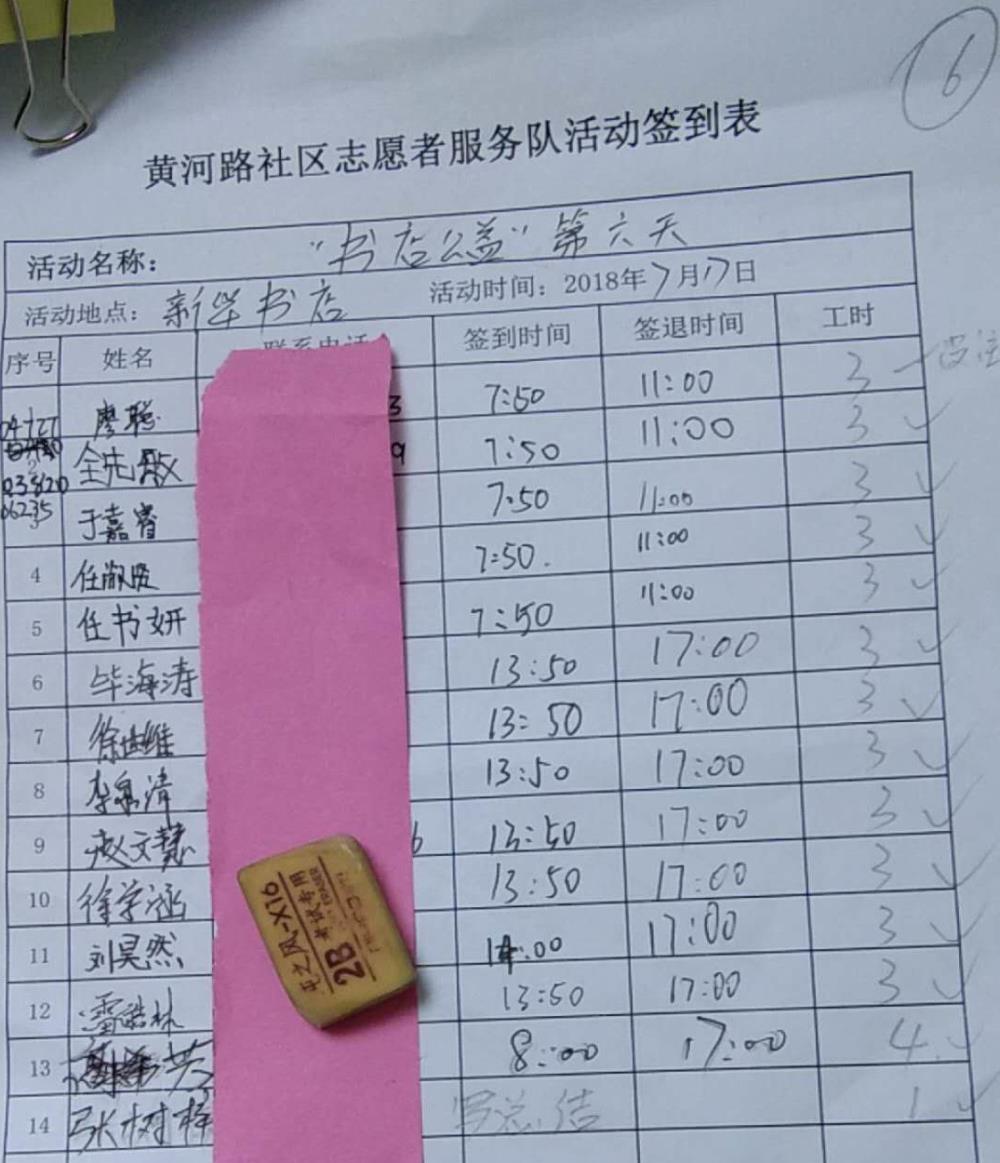 6
黄河路社区志愿者服务队活动签到表
活动名称： "书店公益"第六天
活动地点：新华书店 活动时间：2018年7月17日
序号 姓名 联系电话 签到时间 签退时间 工时
廖聪 3 7:50 11:00 3
2 全先敏 9 7:50 11:00 3 ✓
03820
06235
3 于嘉睿 7:50 11:00 3 ✓
4 任淑贤 7:50. 11:00 3 ✓
5 任书妍 7:50 11:00 3 ✓
6 毕海涛 13:50 17:00 3 ✓
7 徐世维 13:50 17:00 3 ✓
8 李泉清 13:50 17:00 3 ✓
9 赵文慧 6 13:50 17:00 3 ✓
10 徐宇涵 13:50 17:00 3 ✓
11 刘昊然 14:00 17:00 3 ✓
12 雷皓林 13:50 17:00 3 ✓
13 芳 8:00 17:00 4 ✓
14 张树梓 写总结 1 ✓
2B 考试专用